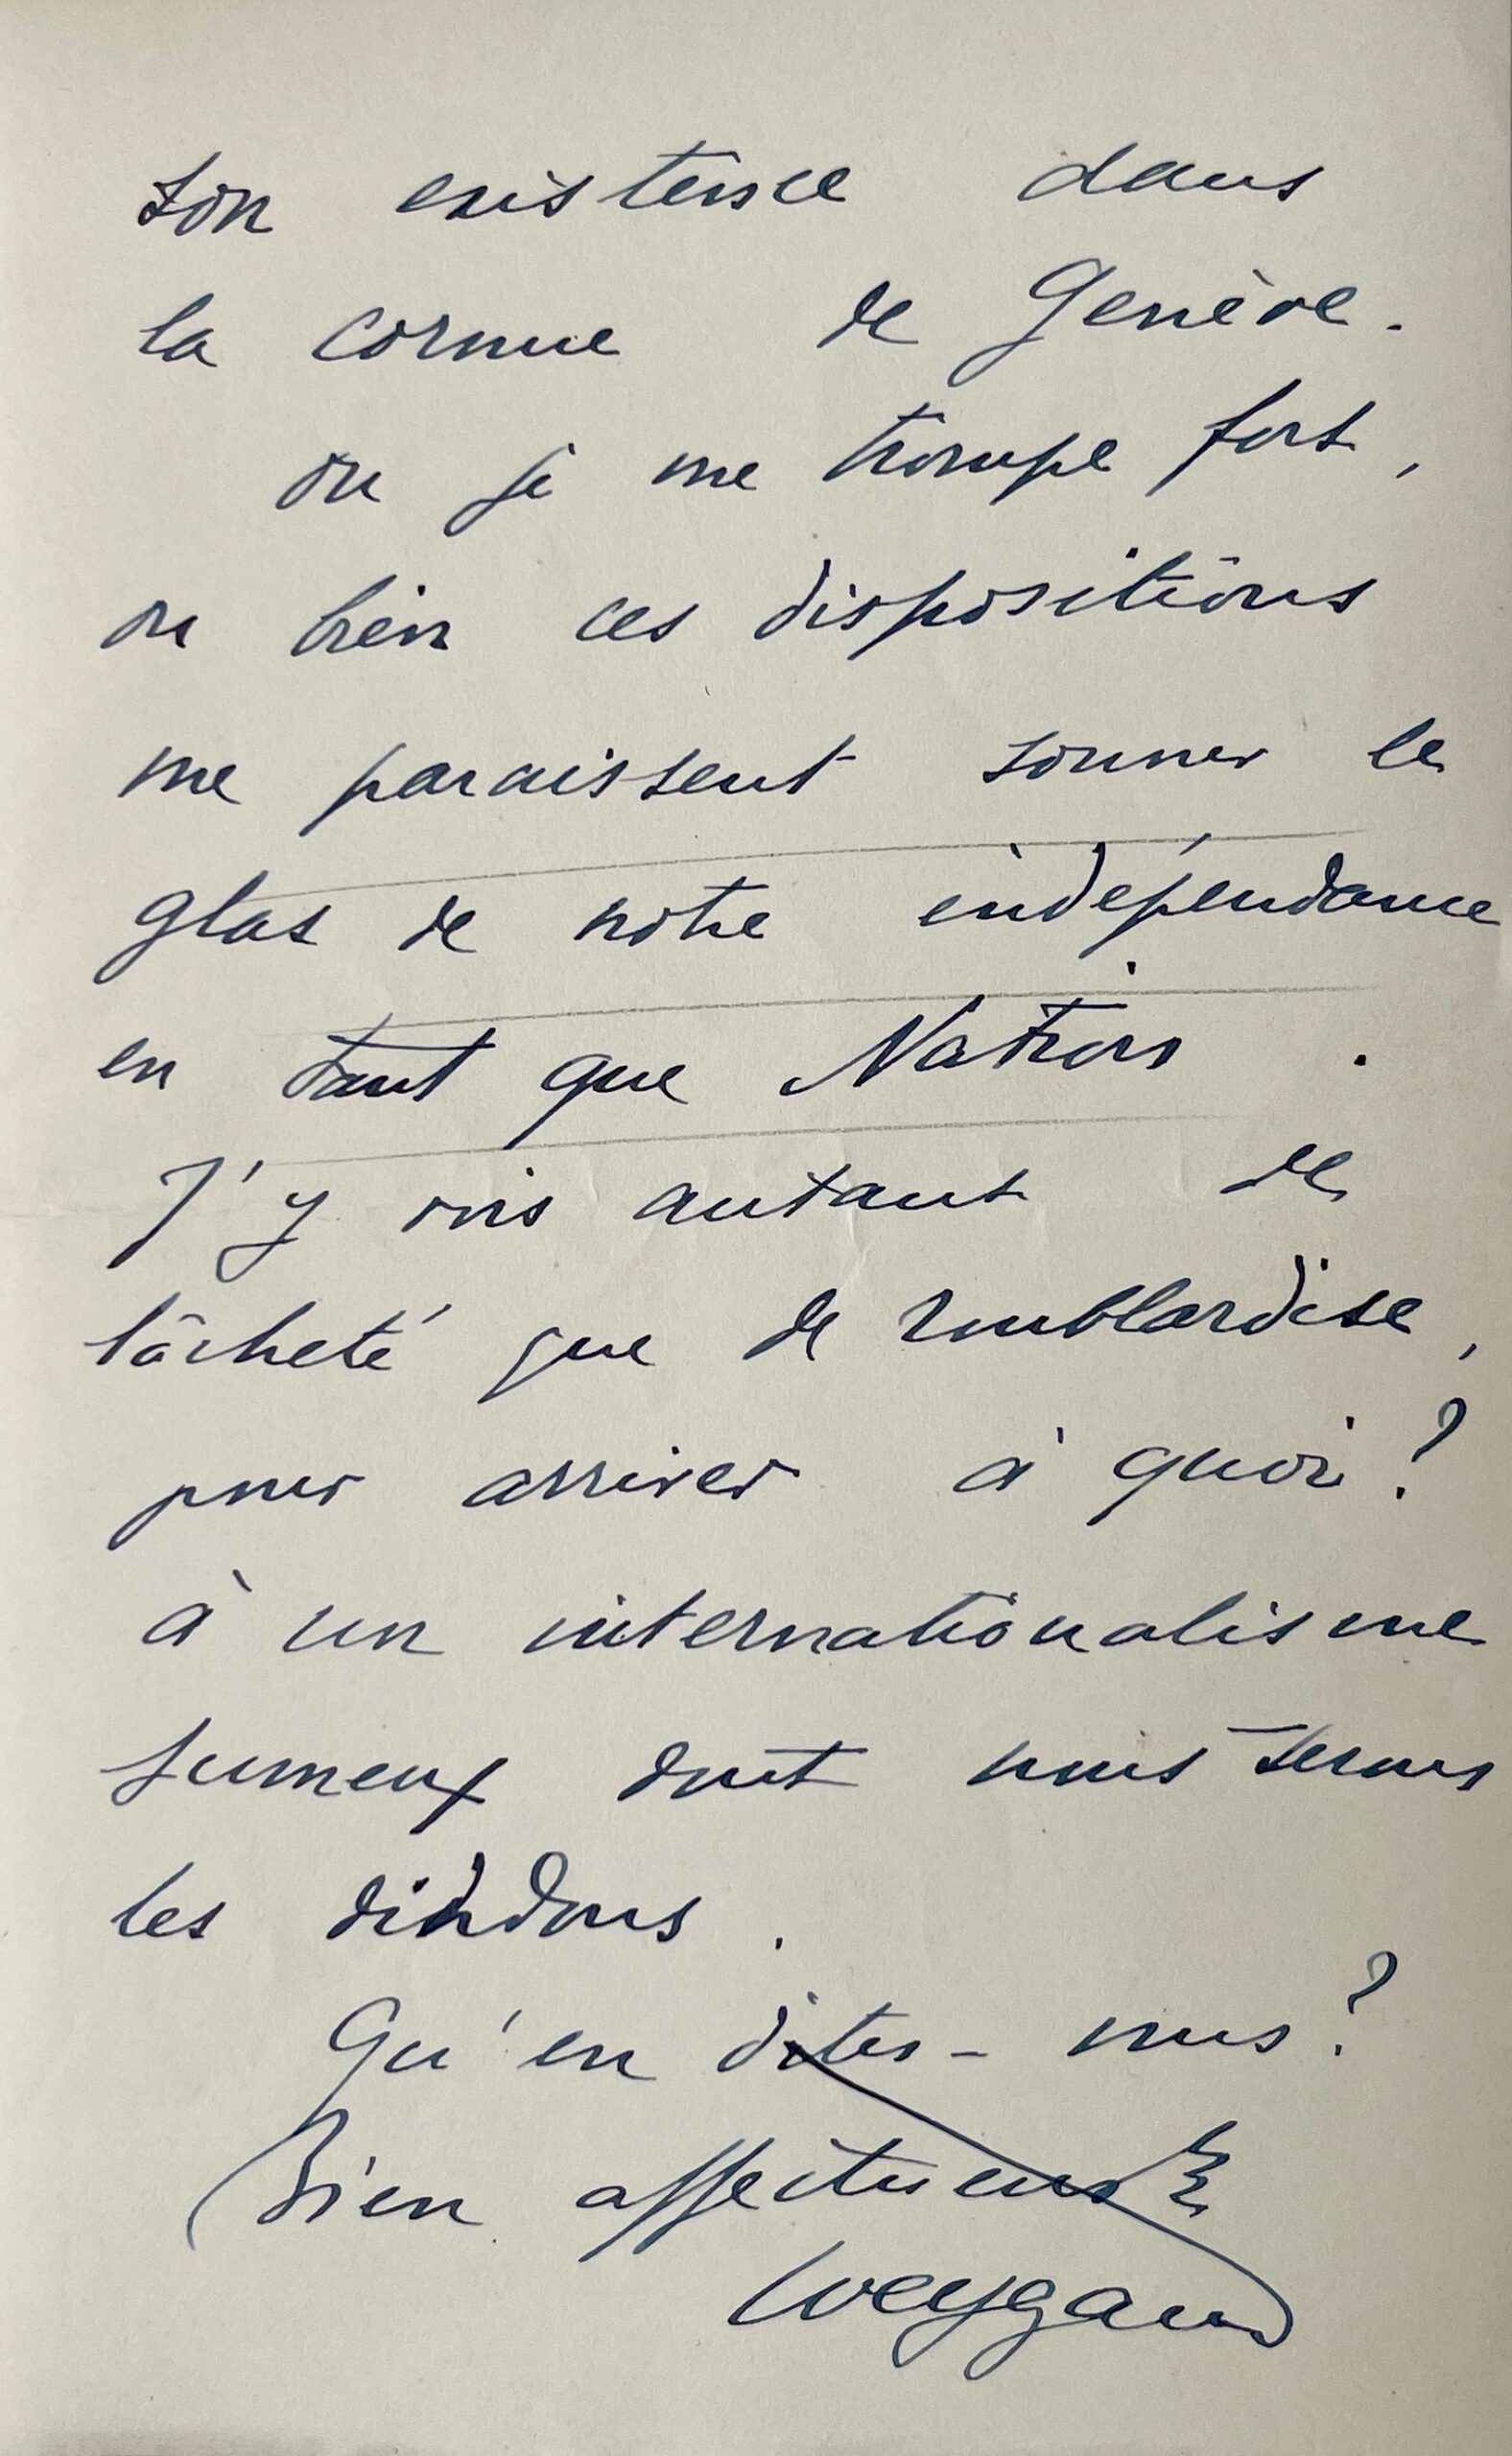 son existence dans
la cornue de Genève.
ou je me trompe fort,
ou bien ces dispositions
me paraissent sonner le
glas de notre indépendance
en tant que Nation.
J'y vois autant de
lâcheté que de roublardise,
pour arriver à quoi ?
à un internationalisme
fumeux dont nous serons
les dindons.
Qu'en dites-vous ?
Bien affectueux
Weygand